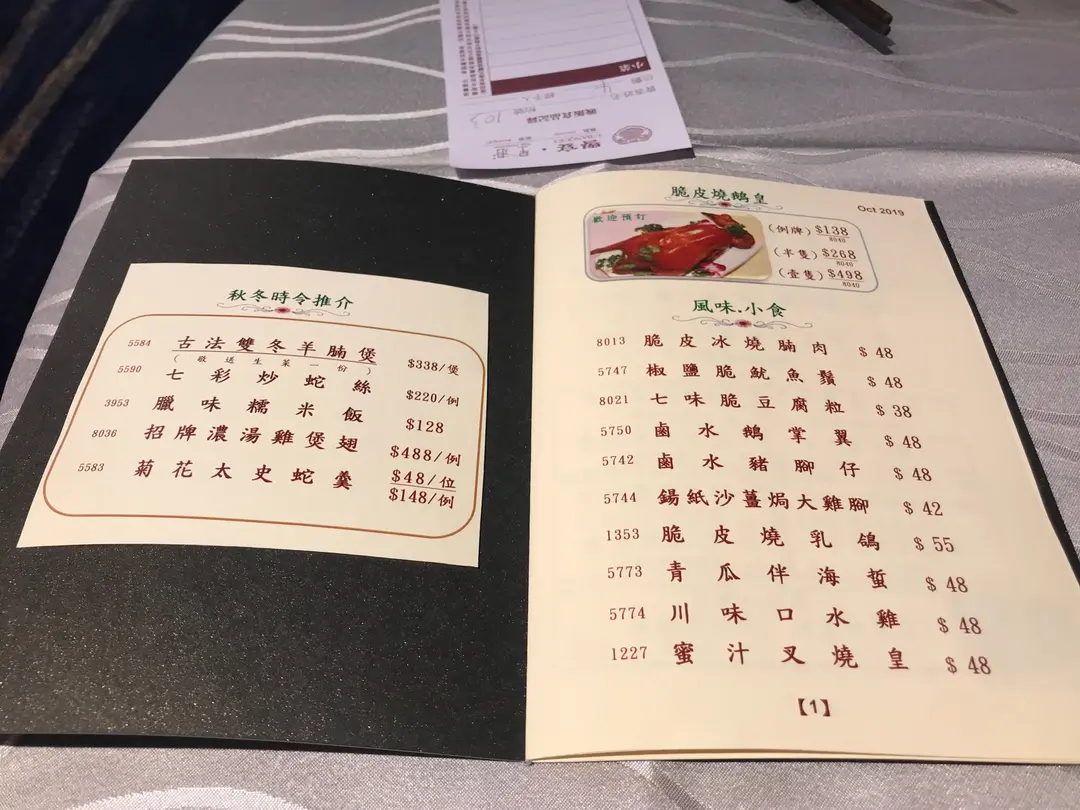 秋冬時令推介
5584 古法雙冬羊腩煲 $338/煲
(敬送生菜一份)
5590 七彩炒蛇絲 $220/例
3953 臘味糯米飯 $128
8036 招牌濃湯雞煲翅 $488/例
5583 菊花太史蛇羹 $48/位
$148/例
脆皮燒鵝皇
Oct 2019
歡迎預訂
(例牌) $138
8040
(半隻) $268
8040
(壹隻) $498
8040
風味.小食
8013 脆皮冰燒腩肉 $ 48
5747 椒鹽脆魷魚鬚 $ 48
8021 七味脆豆腐粒 $ 38
5750 鹵水鵝掌翼 $ 48
5742 鹵水豬腳仔 $ 48
5744 錫紙沙薑焗大雞腳 $ 42
1353 脆皮燒乳鴿 $ 55
5773 青瓜伴海蜇 $ 48
5774 川味口水雞 $ 48
1227 蜜汁叉燒皇 $ 48
【1】
小菜
晚飯食品記錄
103